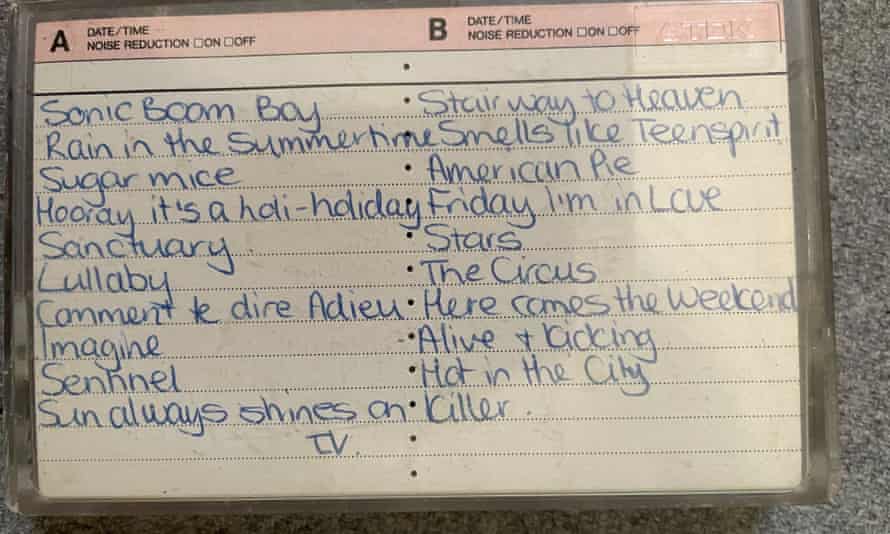 A DATE/TIME
NOISE REDUCTION ☐ON ☐OFF
B DATE/TIME
NOISE REDUCTION ☐ON ☐OFF
TDK
Sonic Boom Boy
Rain in the Summertime
Sugar mice
Hooray it's a holi-holiday
Sanctuary
Lullaby
Comment te dire Adieu
Imagine
Sentinel
Sun always shines on
TV.
• Stairway to Heaven
Smells like Teenspirit
• American Pie
Friday I'm in Love
• Stars
• The Circus
• Here comes the Weekend
• Alive + Kicking
• Hot in the City
• Killer.